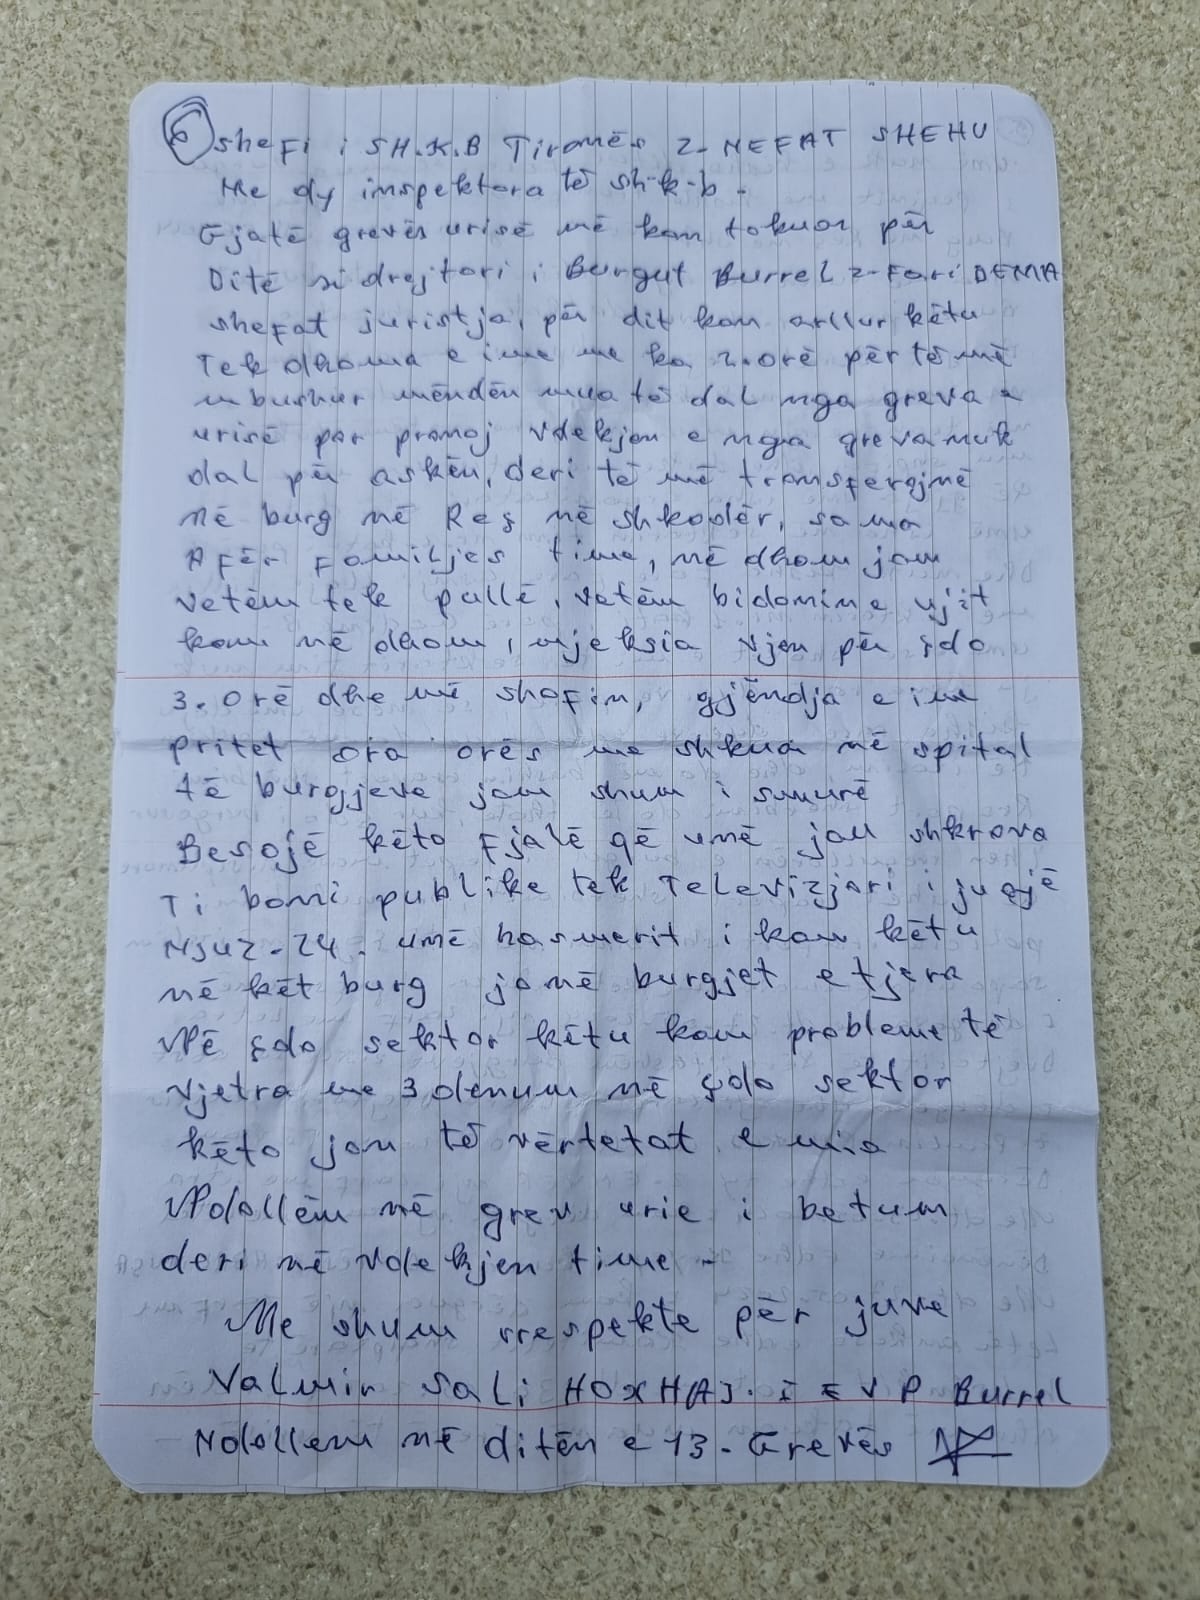 6 shefi i SH.K.B Tiranës z- NEFAT SHEHU
Me dy inspektora të sh-k-b -
Gjatë grevës urisë më kan takuar për
Ditë si drejtori i Burgut Burrel z- Fari DEMA
shefat juristja, për dit kan arllur këtu
Tek dhoma e ime me ka 2.orë për të më
mbushur mëndën mua të dal nga greva e
urisë por pranoj vdekjen e nga greva nuk
dal për askën, deri të më transferojnë
në burg në Reç në shkodër, sa ma
Afër Familjes time, në dhom jam
vetëm tek pallë, vetëm bidonin e ujit
kam në dhom, mjeksia vjen për çdo
3. orë dhe më shofin, gjëndja e ime
pritet ora orës me shkua në spital
të burgjeve jam shum i smurë
Besojë këto Fjalë që unë jau shkrova
Ti boni publike tek Televizjori i juajë
Njuz-24. unë hasmerit i kam këtu
në két burg janë burgjet etjera
Në çdo sektor këtu kam probleme të
vjetra me 3 denum në çdo sektor
këto jan të vërtetat e mia
Ndollëm në grev urie i betum
deri në vdekjen time -
Me shum rrespekte për juve
Valmir Sali HOXHAJ. I E V P Burrel
Ndollem në ditën e 13. Grevës